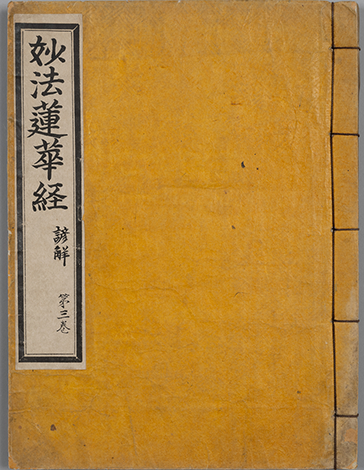 妙法蓮華経
諺解
第三巻